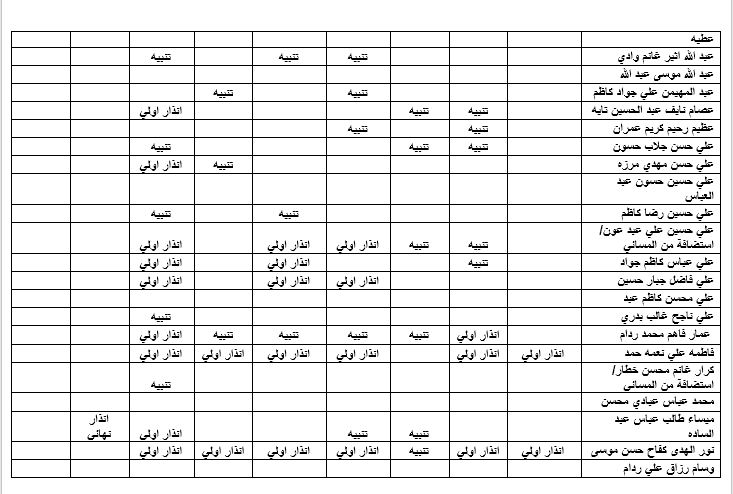 عطيه
عبد الله اثير غانم وادي تنبيه تنبيه تنبيه
عبد الله موسى عبد الله
عبد المهيمن علي جواد كاظم تنبيه تنبيه
عصام نايف عبد الحسين تايه تنبيه تنبيه انذار اولي
عظيم رحيم كريم عمران تنبيه تنبيه
علي حسن جلاب حسون تنبيه تنبيه تنبيه
علي حسن مهدي مرزه تنبيه انذار اولي
علي حسين حسون عبد
العباس
علي حسين رضا كاظم تنبيه تنبيه
علي حسين علي عبد عون/
استضافة من المسائي تنبيه تنبيه انذار اولي انذار اولي انذار اولي
علي عباس كاظم جواد تنبيه انذار اولي انذار اولي
علي فاضل جبار حسين انذار اولي انذار اولي انذار اولي
علي محسن كاظم عبد
علي ناجح غالب بدري تنبيه
عمار فاهم محمد ردام انذار اولي تنبيه تنبيه تنبيه تنبيه انذار اولي
فاطمه علي نعمه حمد انذار اولي انذار اولي انذار اولي انذار اولي انذار اولي انذار اولي
كرار غانم محسن خطار/
استضافة من المسائي تنبيه
محمد عباس عبادي محسن
ميساء طالب عباس عبد انذار
الساده تنبيه تنبيه انذار اولي نهائي
نور الهدى كفاح حسن موسى انذار اولي انذار اولي تنبيه انذار اولي انذار اولي انذار اولي انذار اولي
وسام رزاق علي ردام